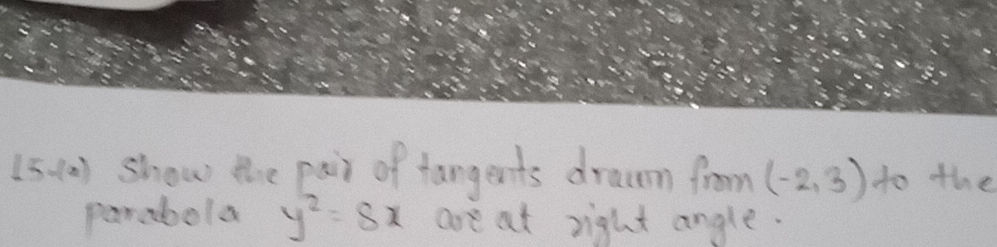 15.(a) Show the pair of tangents drawn from (-2,3) to the
parabola y² = 8x are at right angle.